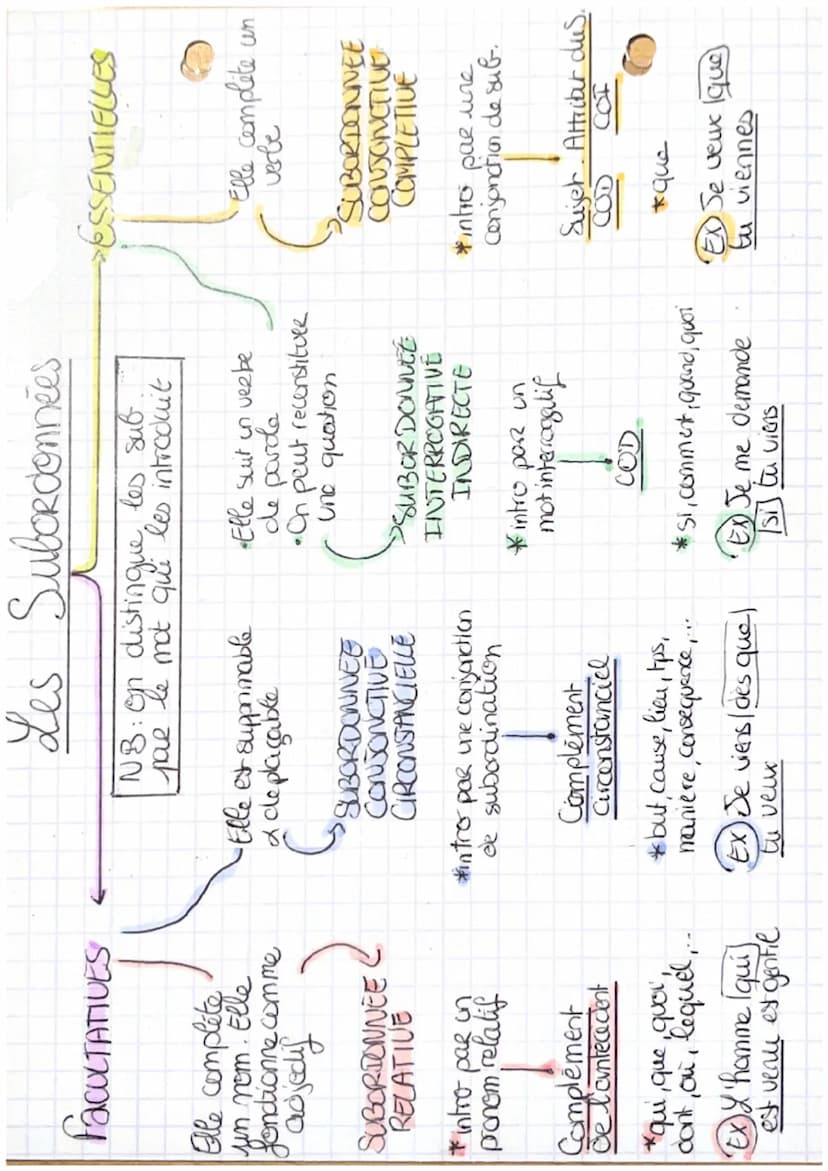 Les Subordonnées
FACULTATIVES
ESSENTIELLES
NB : On distingue les sub
par le mot qui les introduit
Elle complète
un nom. Elle
fonctionne comme
adjectif
SUBORDONNÉE
RELATIVE
* intro par un
pronom relatif
Complément
de l'antécédent
* qui, que, quoi,
dont, où, lequel,...
EX L'homme qui
est venu est gentil
Elle est supprimable
& déplaçable
SUBORDONNÉE
CONJONCTIVE
CIRCONSTANCIELLE
* intro par une conjonction
de subordination
Complément
circonstanciel
* but, cause, lieu, tps,
manière, consequence,...
EX Je viens dès que
tu veux
• Elle suit un verbe
de parole
• On peut reconstituer
une question
SUBORDONNÉE
INTERROGATIVE
INDIRECTE
* intro par un
mot interrogatif
COD
* si, comment, quand, quoi
EX Je me demande
si tu viens
Elle complète un
verbe
SUBORDONNÉE
CONJONCTIVE
COMPLETIVE
* intro par une
conjonction de sub.
Sujet Attribut du S.
COD COI
* que
EX Je veux que
tu viennes